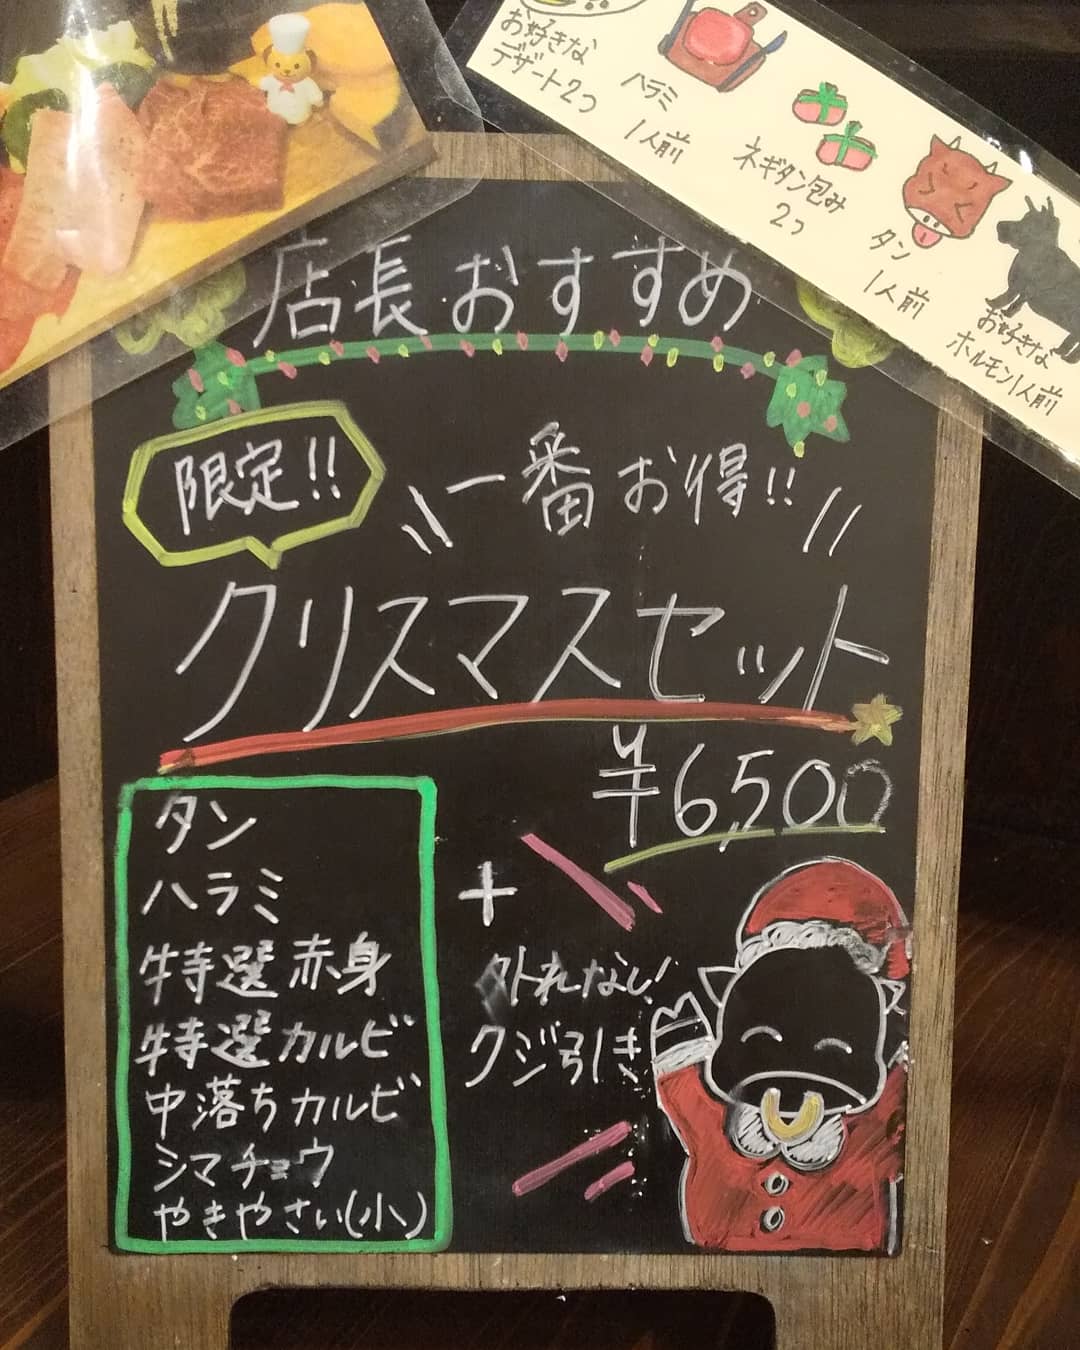 お好きな
デザート2つ
ハラミ
1人前
ネギタン包み
2つ
タン
1人前
お好きな
ホルモン1人前
店長おすすめ
限定!!
一番お得!!
クリスマスセット
¥6,500
タン
ハラミ
特選赤身
特選カルビ
中落ちカルビ
シマチョウ
やきやさい(小)
+
外れない!
クジ引き